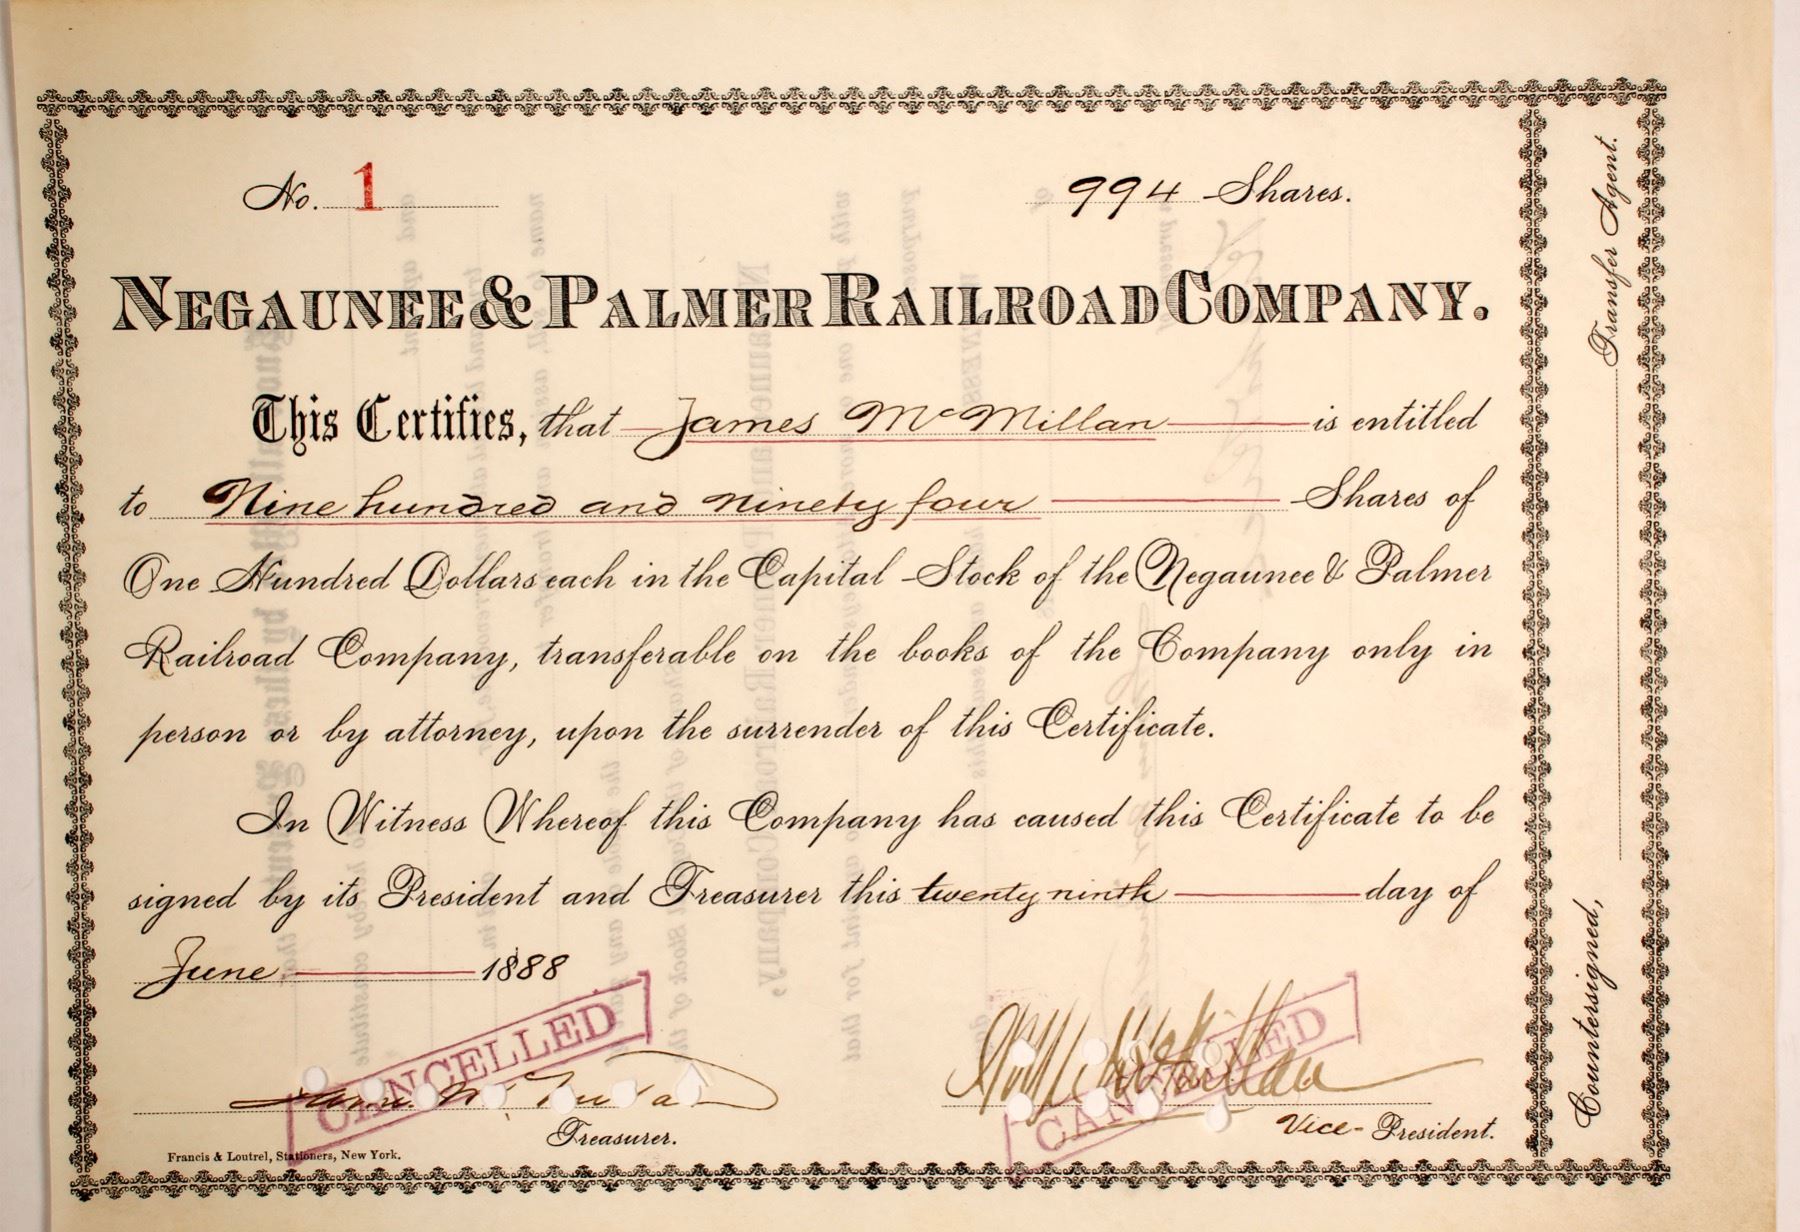 No. 1
994 Shares.
NEGAUNEE & PALMER RAILROAD COMPANY.
This Certifies, that James McMillan is entitled
to Nine hundred and ninety four Shares of
One Hundred Dollars each in the Capital Stock of the Negaunee & Palmer
Railroad Company, transferable on the books of the Company only in
person or by attorney, upon the surrender of this Certificate.
In Witness Whereof this Company has caused this Certificate to be
signed by its President and Treasurer this twenty ninth day of
June 1888
CANCELLED
CANCELLED
Treasurer.
Vice-President.
Francis & Loutrel, Stationers, New York.
Countersigned, Transfer Agent.